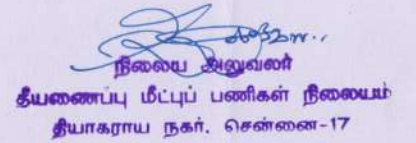 நிலைய அலுவலர்
தீயணைப்பு மீட்புப் பணிகள் நிலையம்
தியாகராய நகர். சென்னை-17